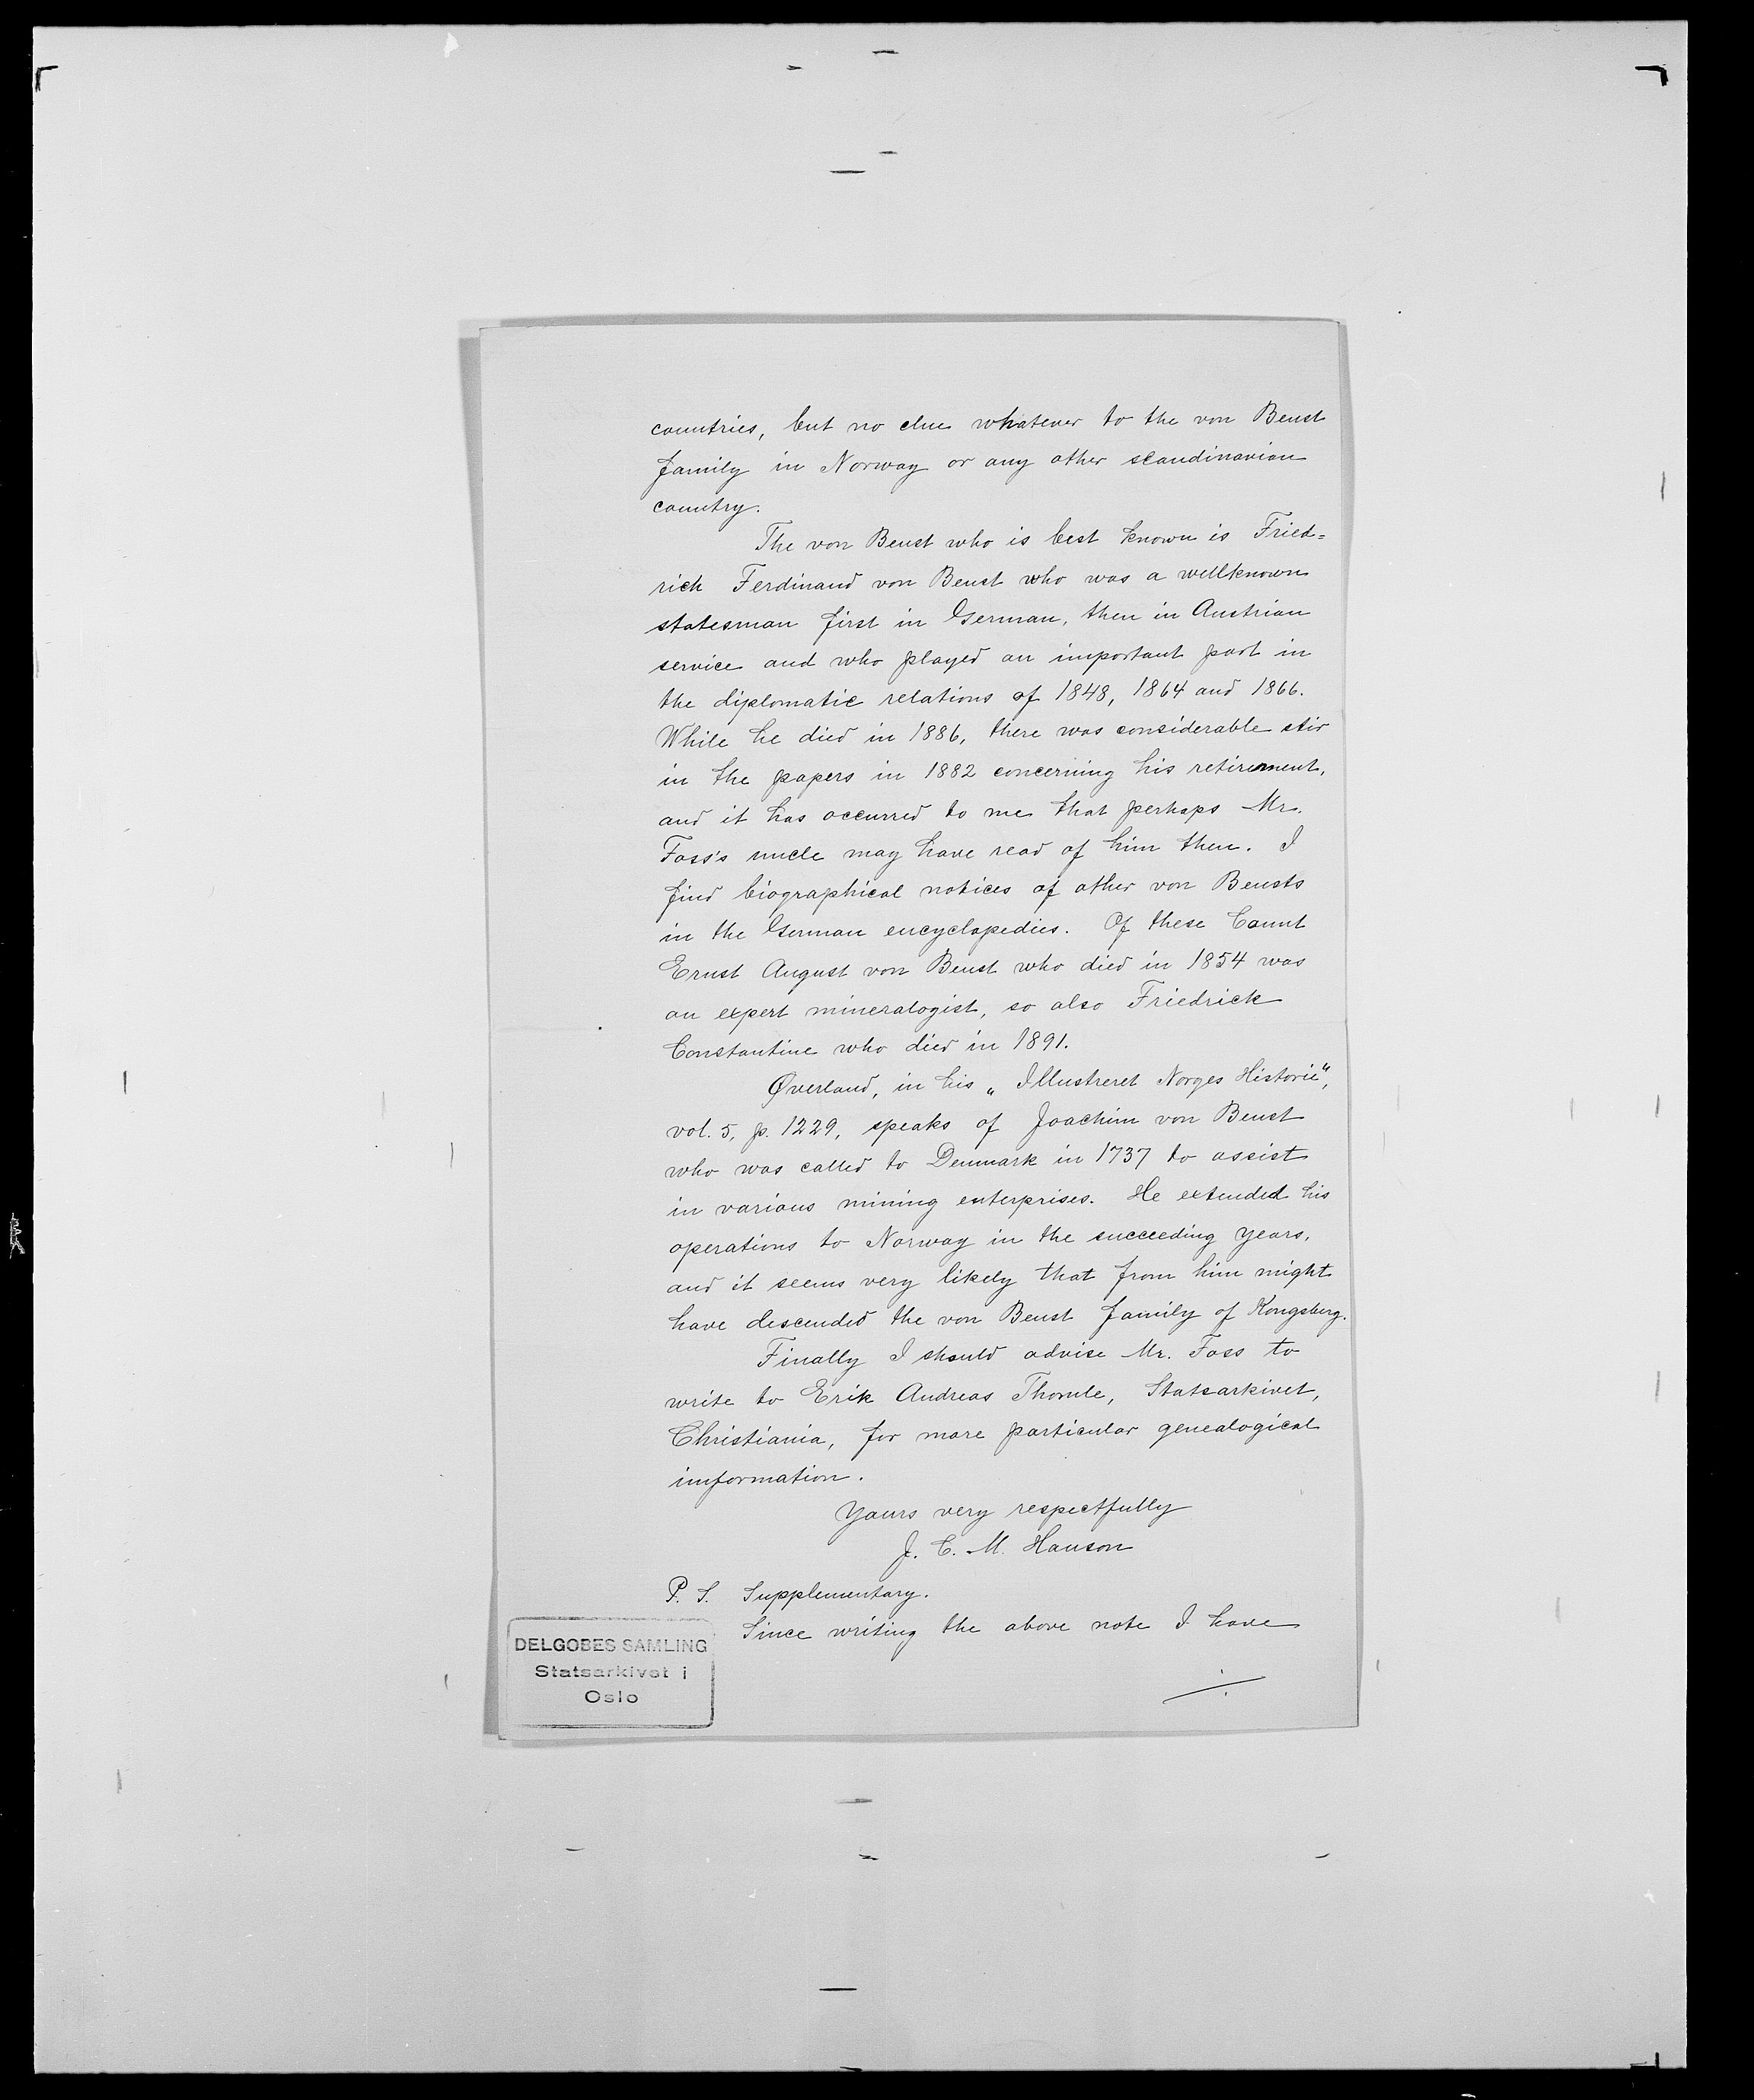 countries, but no clue whatever to the von Beust
family in Norway or any other scandinavian
country.
The von Beust who is best known is Fried=
rich Ferdinand von Beust who was a wellknown
statesman first in German, then in Austrian
service and who played an important part in
the diplomatic relations of 1848, 1864 and 1866.
While he died in 1886, there was considerable stir
in the papers in 1882 concerning his retirement,
and it has occurred to me that perhaps Mr.
Foss's uncle may have read of him then. I
find biographical notices of other von Beusts
in the German encyclopedies. Of these Count
Ernst August von Beust who died in 1854 was
an expert mineralogist, so also Friedrick
Constantine who died in 1891.
Øverland, in his „Illustreret Norges Historie",
vol. 5, p. 1229, speaks of Joachim von Beust
who was called to Denmark in 1737 to assist
in various mining enterprises. He extended his
operations to Norway in the succeeding years,
and it seems very likely that from him might
have descended the von Beust family of Kongsberg.
Finally I should advise Mr. Foss to
write to Erik Andreas Thomle, Statsarkivet,
Christiania, for more particular genealogical
imformation.
Yours very respectfully
J. C. M. Hanson
P. S. Supplementary.
Since writing the above note I have
DELGOBES SAMLING
Statsarkivet i
Oslo